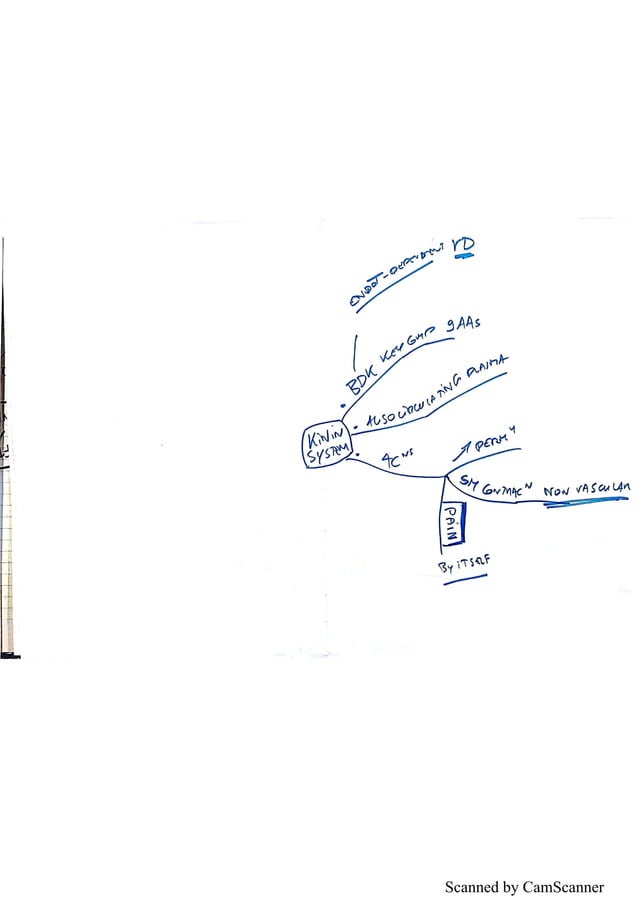 ENDOT-DEPENDENT VD
BDK KEY COMP 9AAs
ALSO CIRCULATING PLASMA
KiNiN
SYSTEM
↗ PERM^Y
SM CONTRAC^N NON VASCULAR
PAiN
By iTSELF
Scanned by CamScanner